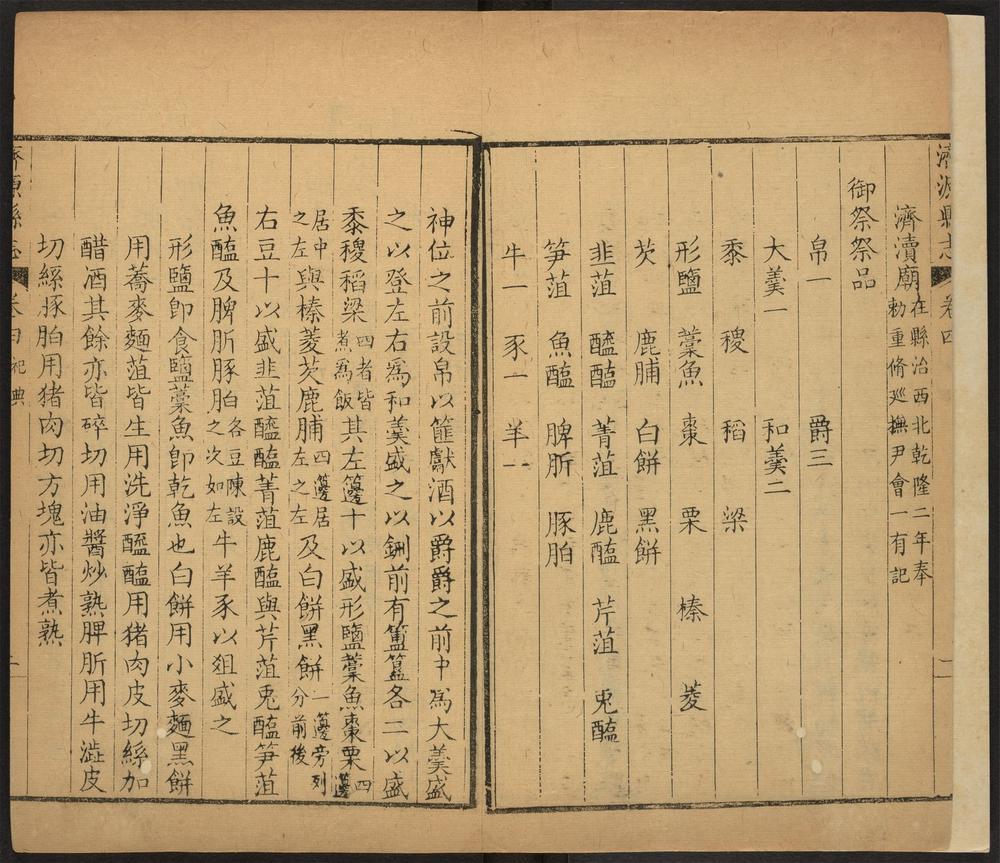 濟源縣志 卷四 二
濟瀆廟在縣治西北乾隆二年奉
勅重脩廵撫尹會一有記
御祭祭品
帛一 爵三
大羹一 和羹二
黍 稷 稻 粱
形鹽 藁魚 棗 栗 榛 菱
芡 鹿脯 白餅 黑餅
韭菹 醓醢 菁菹 鹿醢 芹菹 兎醢
笋菹 魚醢 脾肵 豚胉
牛一 豕一 羊一
神位之前設帛以篚獻酒以爵爵之前中爲大羹盛
之以登左右爲和羹盛之以鉶前有簠簋各二以盛
黍稷稻梁四者皆煮爲飯其左籩十以盛形鹽藁魚棗栗四籩
居中之左與榛菱芡鹿脯四籩居左之左及白餅黑餅一籩旁列分前後
右豆十以盛韭菹醓醢菁菹鹿醢與芹菹兎醢笋菹
魚醢及脾肵豚胉各豆陳設之次如左牛羊豕以俎盛之
形鹽卽食鹽藁魚卽乾魚也白餅用小麥麵黑餅
用蕎麥麵菹皆生用洗淨醓醢用猪肉皮切絲加
醋酒其餘亦皆碎切用油醬炒熟脾肵用牛澁皮
切絲豚胉用猪肉切方塊亦皆煮熟
濟源縣志 卷四 祀典 二